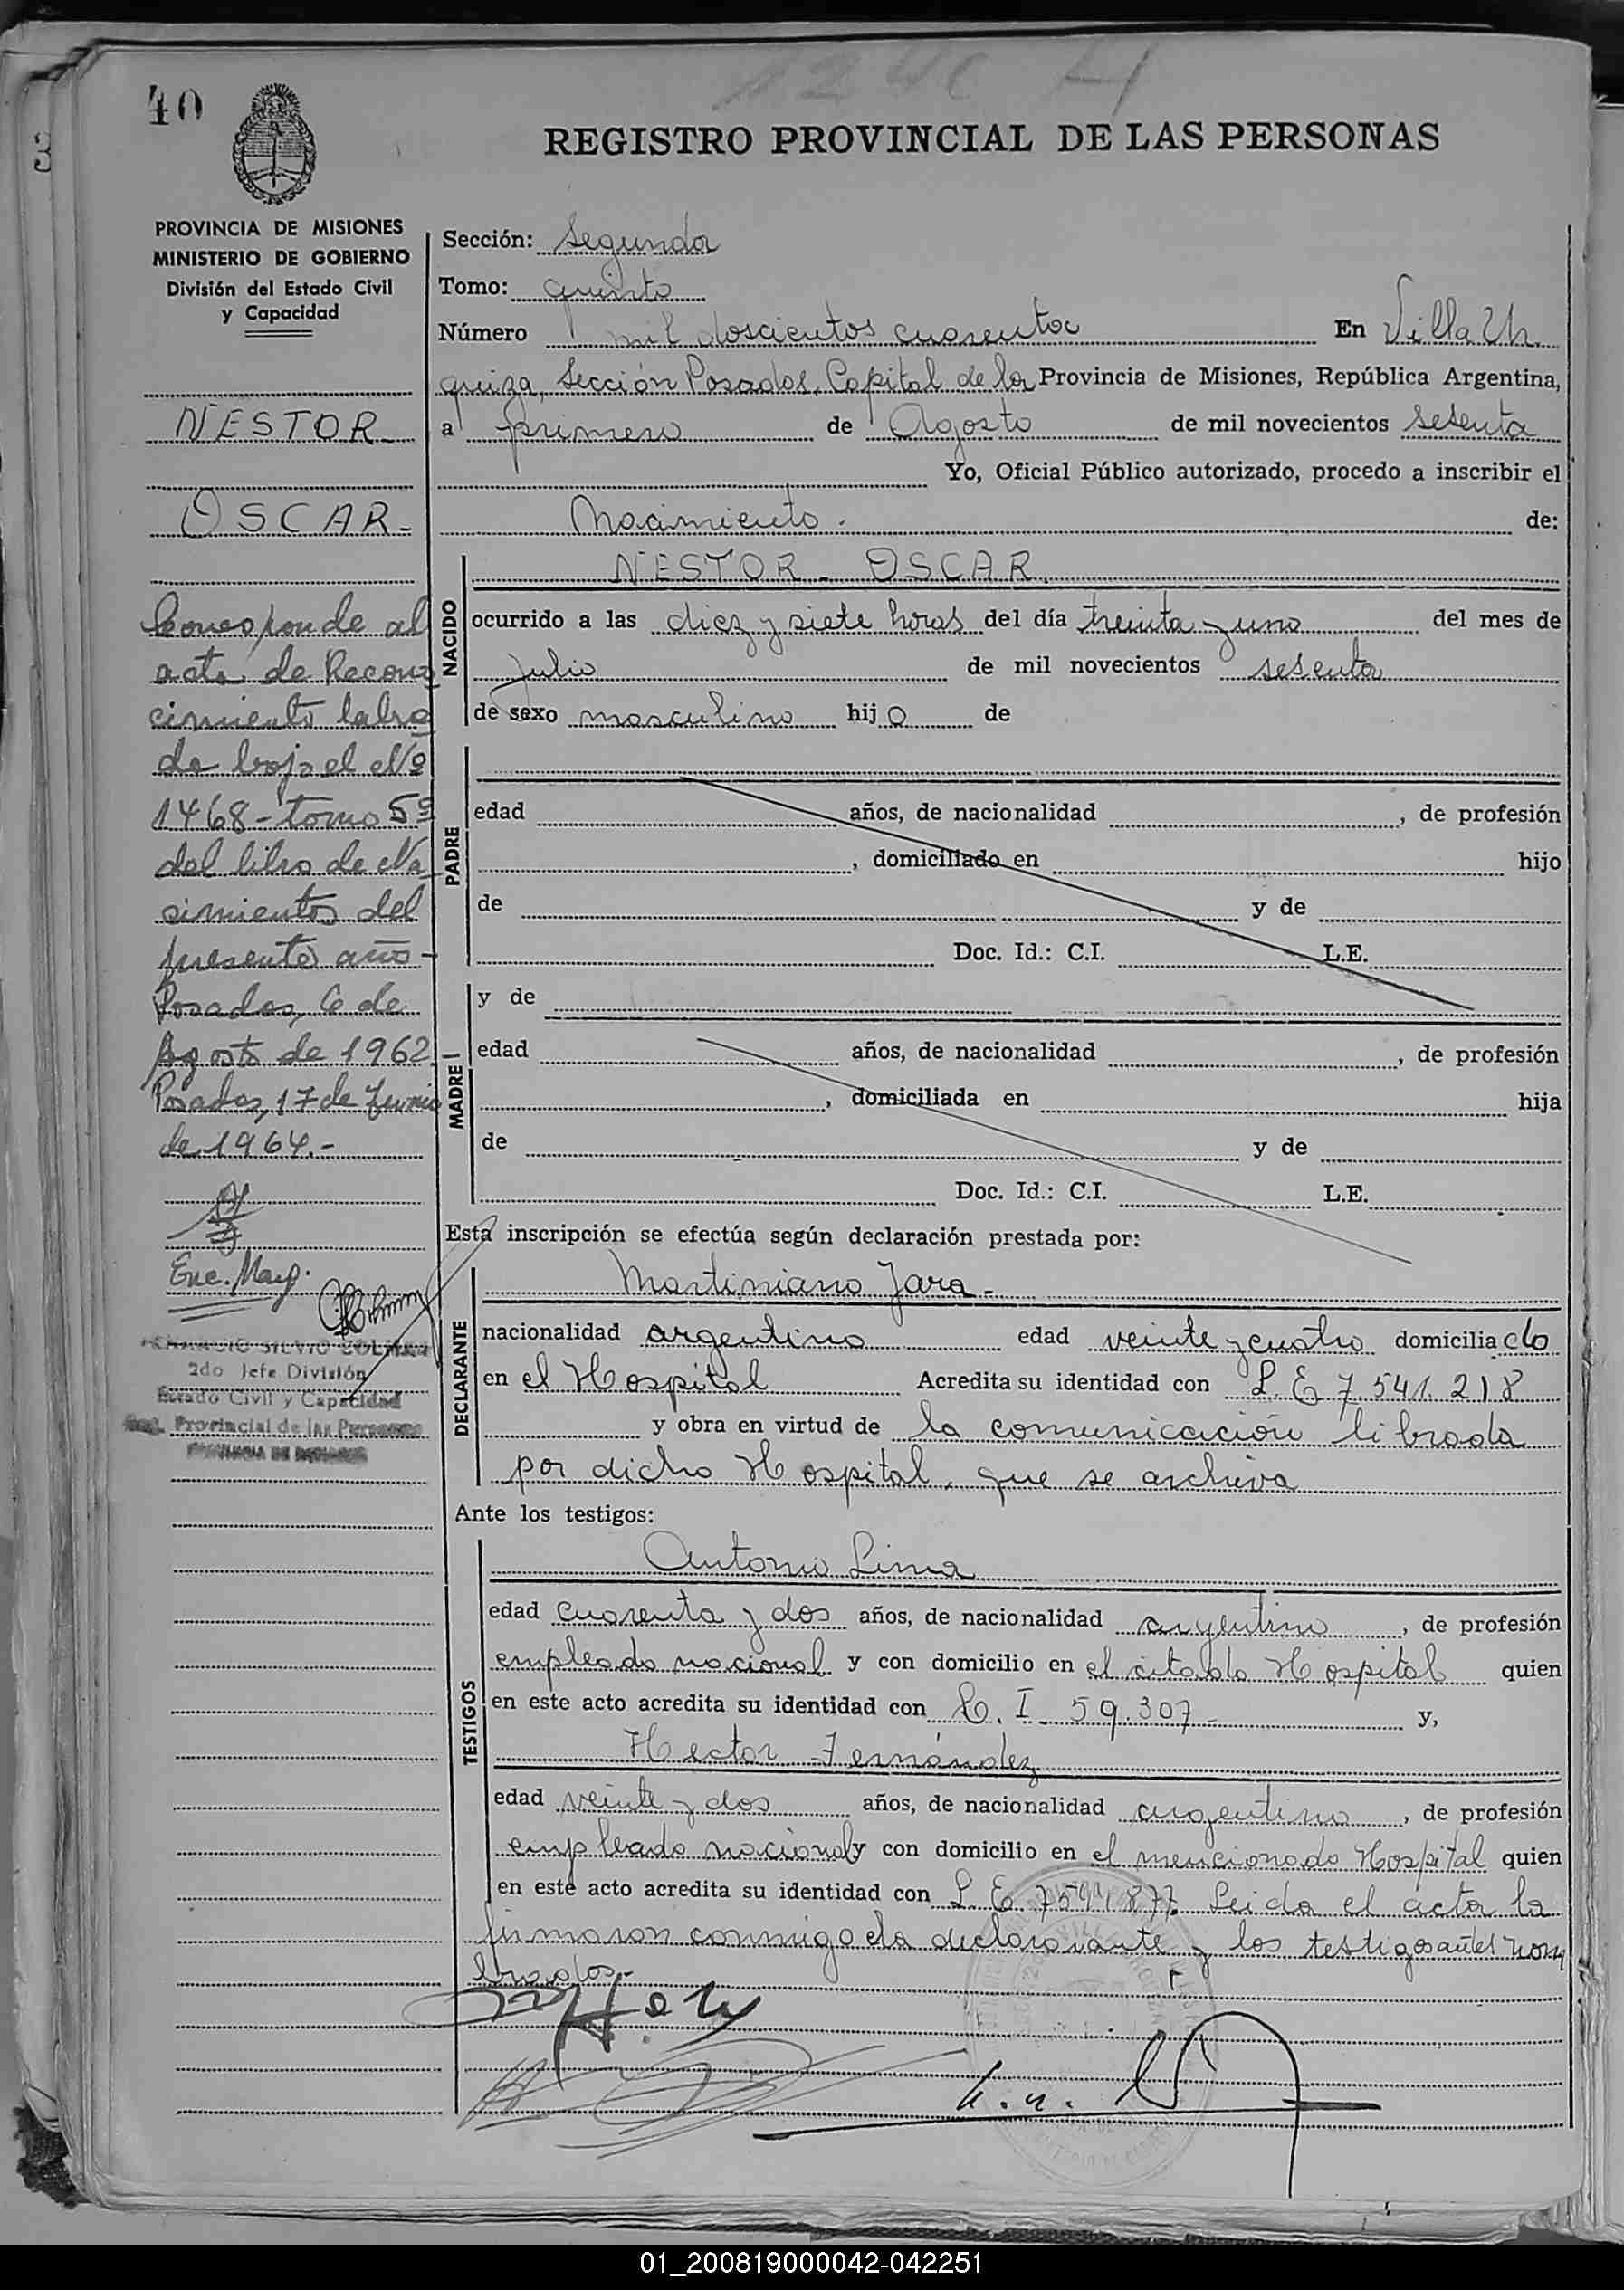 40
REGISTRO PROVINCIAL DE LAS PERSONAS
PROVINCIA DE MISIONES
MINISTERIO DE GOBIERNO
División del Estado Civil
y Capacidad
NESTOR
OSCAR-
Corresponde al
acta de Recono
cimiento labra
da bajo el Nº
1468-tomo 5º
del libro de Na
cimientos del
presente año-
Posadas, 6 de
Agosto de 1962
Posadas, 17 de Junio
de 1964.-
Enc. Marg.
2do Jefe División
Estado Civil y Capacidad
Provincial de las Personas
Sección: Segunda
Tomo: quinto
Número mil doscientos cuarenta En Villa Ur
quiza, Sección Posadas, Capital de la Provincia de Misiones, República Argentina,
a primero de Agosto de mil novecientos sesenta
Yo, Oficial Público autorizado, procedo a inscribir el
Nacimiento. de:
NACIDO
NESTOR - OSCAR
ocurrido a las diez y siete horas del día treinta y uno del mes de
Julio de mil novecientos sesenta
de sexo masculino hijo de
PADRE
edad años, de nacionalidad , de profesión
, domiciliado en hijo
de y de
Doc. Id.: C.I. L.E.
MADRE
y de
edad años, de nacionalidad , de profesión
, domiciliada en hija
de y de
Doc. Id.: C.I. L.E.
Esta inscripción se efectúa según declaración prestada por:
DECLARANTE
Martiniano Jara-
nacionalidad argentino edad veinte y cuatro domiciliado
en el Hospital Acredita su identidad con L E 7.541.218
y obra en virtud de la comunicación librada
por dicho Hospital, que se archiva
Ante los testigos:
TESTIGOS
Antonio Lima
edad cuarenta y dos años, de nacionalidad argentino, de profesión
empleado nacional y con domicilio en el citado Hospital quien
en este acto acredita su identidad con C. I 59.307- y,
Hector Fernández
edad veinte y dos años, de nacionalidad argentino, de profesión
empleado nacional y con domicilio en el mencionado Hospital quien
en este acto acredita su identidad con L. E 7591877. Leida el acta la
firmaron conmigo el declarante y los testigos antes nom
brados.-
01_200819000042-042251